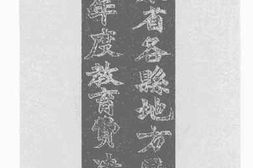 省各縣地方
年度教育費